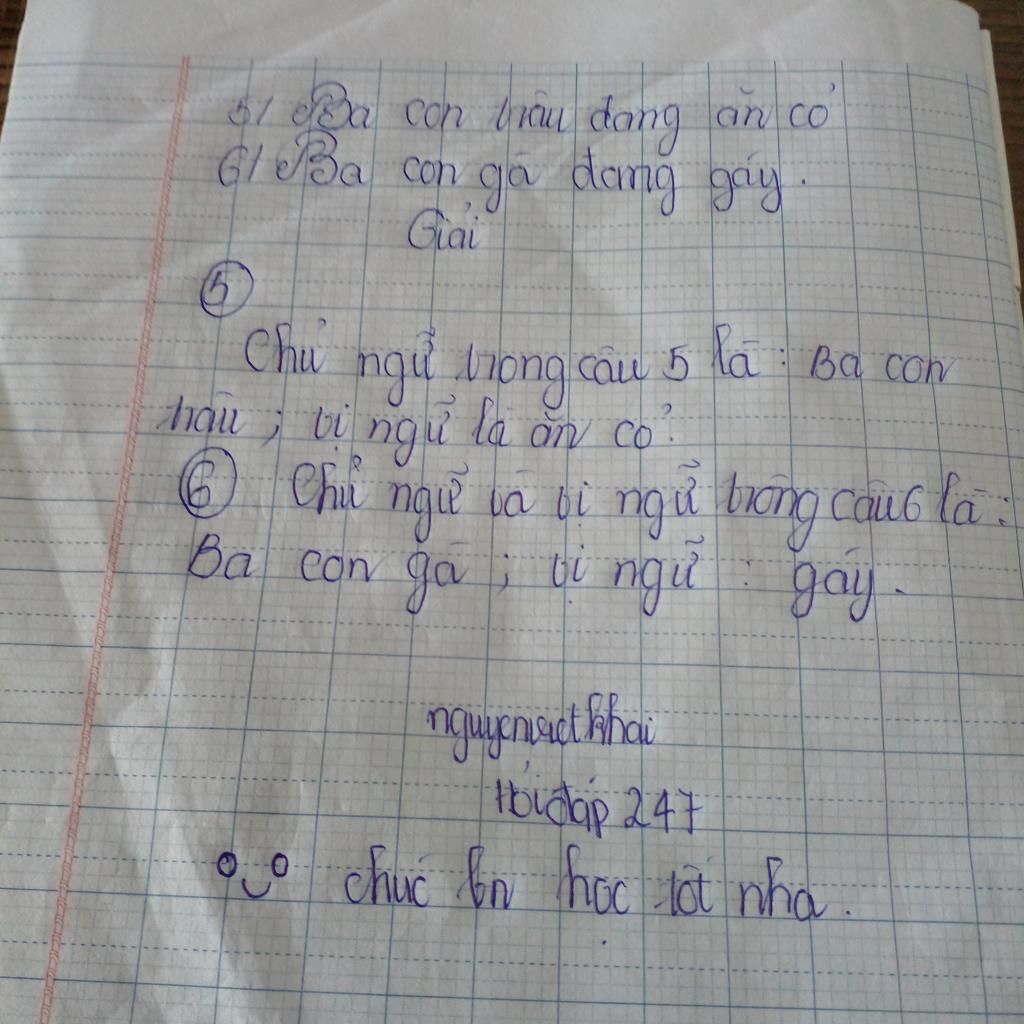 5/ Ba con trâu đang ăn cỏ
6/ Ba con gà đang gáy.
Giải
5
Chủ ngữ trong câu 5 là: Ba con
trâu; vị ngữ là ăn cỏ.
6 Chủ ngữ và vị ngữ trong câu 6 là:
Ba con gà; vị ngữ: gáy.
nguyenvietkhai
Hỏi đáp 247
chúc bn học tốt nha.